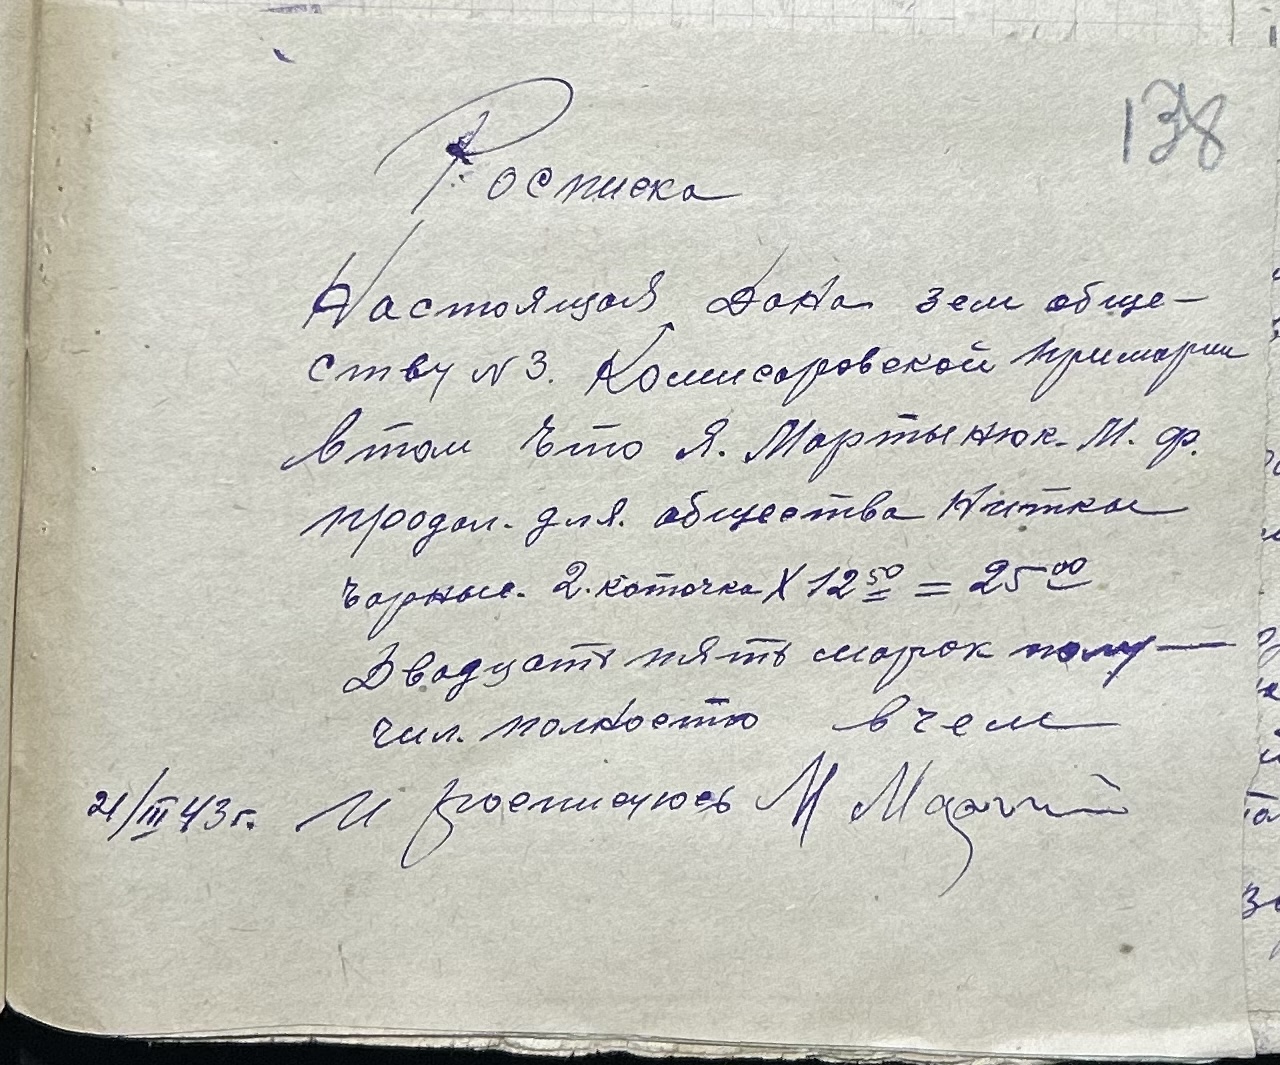 138
Росписка
Настоящая Дана зем обще-
ству N 3. Комисаровской примарии
втом что я. Мартынюк. М. ф.
продал. для. общества Нитки
чарные. 2. каточка X 12 50 = 25 00
Двадцать пять марок полу-
чил. полностю в чем
21/III 43 г. и росписуюсь М